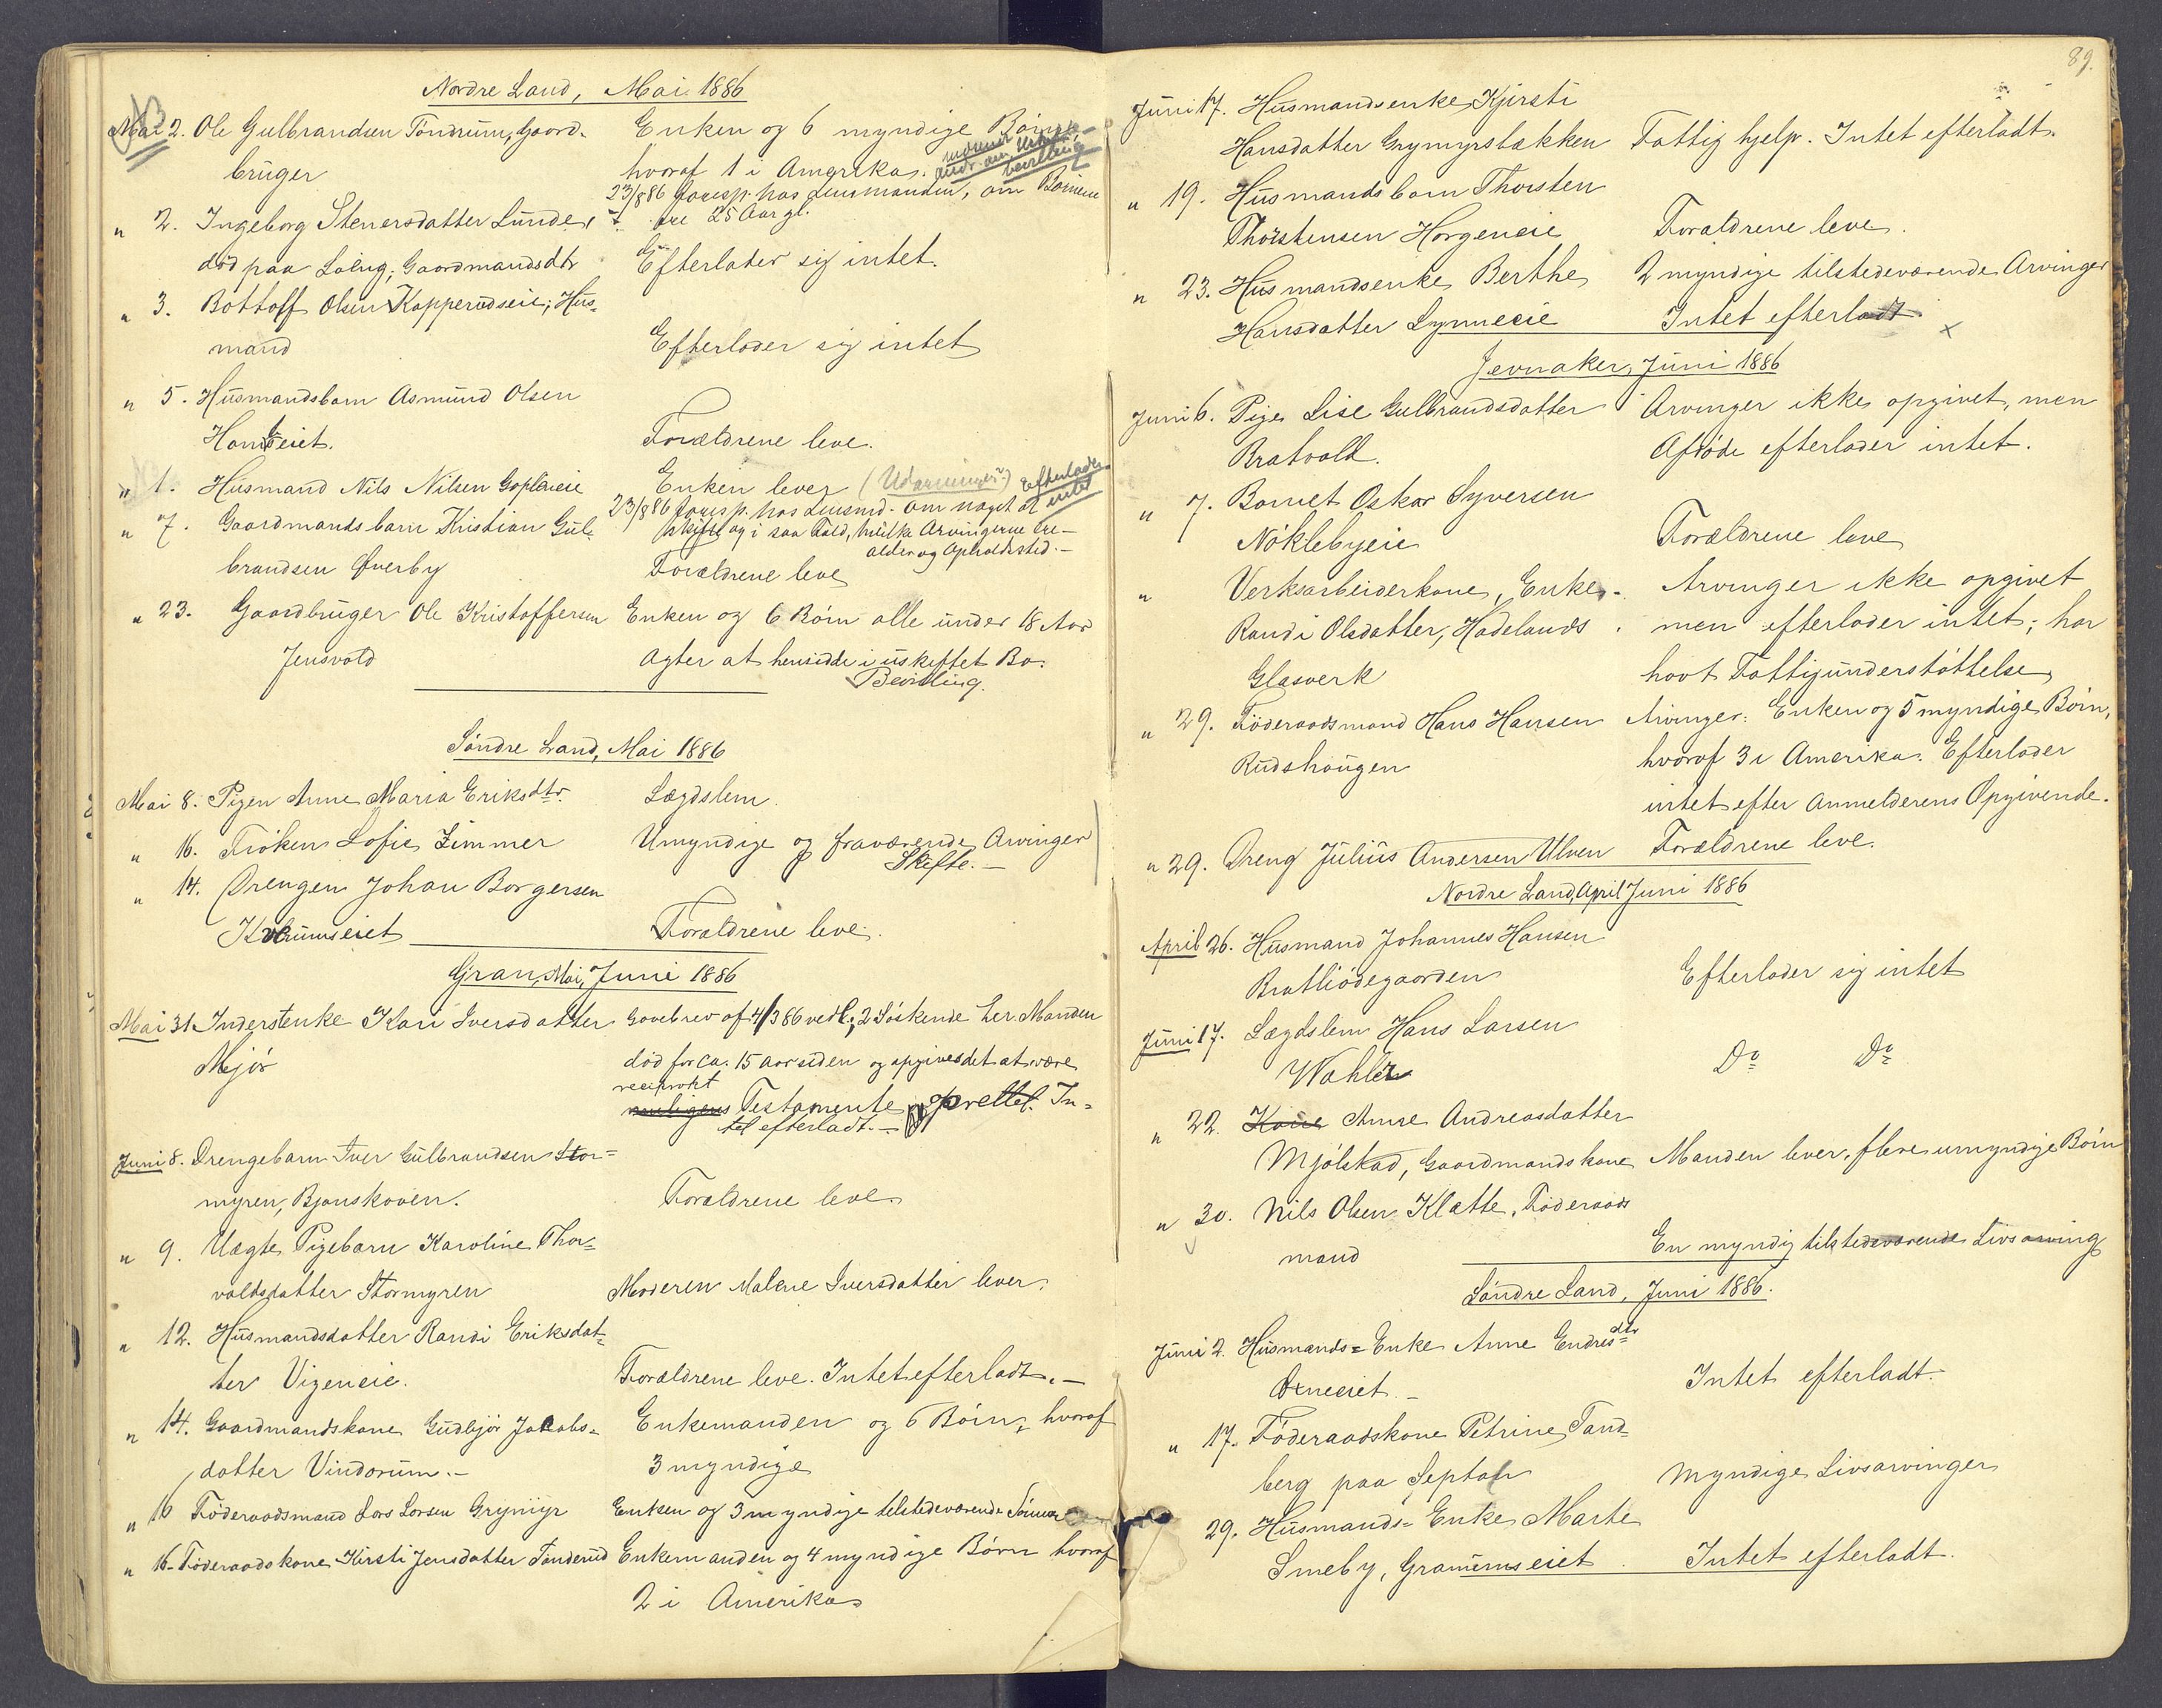 Nordre Land, Mai 1886
Mai 2. Ole Gulbrandsen Tøndrum, Gaard- Enken og 6 myndige Børn
bruger hvoraf 1 i Amerika.
23/8 86 foresp. hos Lensmanden, om Børnene
ere 25 Aar gl.
" 2. Ingeborg Stenersdatter Lunde,
død paa Løing, Gaardmandsdtr Efterlader sig intet.
" 3. Bottolf Olsen Kopperudseie, Hus-
mand Efterlader sig intet
" 5. Husmandsbarn Asmund Olsen
Homseiet. Forældrene leve.
" 1. Husmand Nils Nilsen Goplerueie Enken lever (Udarvinger?) Efterlader intet
23/8 86 foresp. hos Lensmd. om noget at
skifte og i saa Fald, hvilke Arvingerne ere -
alder og Opholdssted. -
" 7. Gaardmandsbarn Kristian Gul-
brandsen Øverby Forældrene leve
" 23. Gaardbruger Ole Kristoffersen Enken og 6 Børn alle under 18 Aar
Jensvold Agter at hensidde i uskiftet Bo.
Bevilling.
Søndre Land, Mai 1886
Mai 8. Pigen Anne Maria Eriksdtr. Lægdslem.
" 16. Frøken Sofie Zimmer Umyndige og fraværende Arvinger
Skifte. -
" 14. Drengen Johan Borgersen
Kolrumseiet Forældrene leve.
Gran, Mai, Juni 1886
Mai 31. Inderstenke Kari Iversdatter Gavebrev af 4/3 86 vedl., 2 Søskende her Manden
Mjør død for ca. 15 aar siden og opgives det at være
reciprokt
Testamente oprettet. In-
tet efterladt. -
Juni 8. Drengebarn Iver Gulbrandsen Stor-
myren, Bjonskoven. Forældrene leve
" 9. Uægte Pigebarn Karoline Thor-
valdsdatter Stormyren Moderen Malene Iversdatter lever.
" 12. Husmandsdatter Randi Eriksdat-
ter Vigeneie. Forældrene leve. Intet efterladt. -
" 14. Gaardmandskone Gudbjør Jakobs- Enkemanden og 6 Børn, hvoraf
datter Vindorum. - 3 myndige
" 16 Føderaadsmand Lars Larsen Grymyr Enken og 3 myndige tilstedeværende Sønner
" 16. Føderaadskone Kirsti Jensdatter Tønderud Enkemanden og 4 myndige Børn hvoraf
2 i Amerika
89.
Juni 17. Husmandsenke Kjersti
Hansdatter Grymyrsbakken Fattighjelp. Intet efterladt.
" 19. Husmandsbarn Thorsten
Thorstensen Horgeneie Forældrene leve.
" 23. Husmandsenke Berthe 2 myndige tilstedeværende Arvinger
Hansdatter Lynneeie Intet efterladt.
Jevnaker, Juni 1886
Juni 6. Pige Lise Gulbrandsdatter Arvinger ikke opgivet, men
Bratvold. Afdøde efterlader intet.
" 7. Barnet Oskar Syversen
Nøklebyeie Forældrene leve
" Verksarbeiderkone, Enke, - Arvinger ikke opgivet
Randi Olsdatter, Hadelands men efterlader intet; har
Glasverk havt Fattigunderstøttelse
" 29. Føderaadsmand Hans Hansen Arvinger: Enken og 5 myndige Børn,
Rudshaugen hvoraf 3 i Amerika. Efterlader
intet efter Anmelderens Opgivende.
" 29. Dreng Julius Andersen Ulven Forældrene leve.
Nordre Land, April Juni 1886
April 26. Husmand Johannes Hansen
Bratliødegaarden Efterlader sig intet
Juni 17. Lægdslem Hans Larsen
Wahler Do Do
" 22. Kone Anne Andreasdatter
Mjølstad, Gaardmandskone Manden lever, flere umyndige Børn
" 30. Nils Olsen Klætte, Føderaads
mand En myndig tilstedeværende Livsarving
Søndre Land, Juni 1886.
Juni 2. Husmands-Enke Anne Endresdtr
Ørneeiet. - Intet efterladt.
" 17. Føderaadskone Petrine Sand-
berg paa Septon Myndige Livsarvinger
29. Husmands-Enke Marte
Smeby, Granumseiet Intet efterladt.